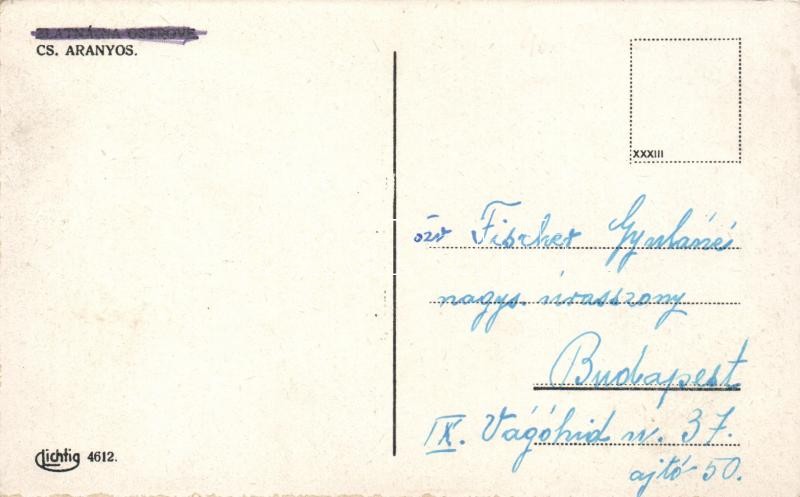 ZLATNÁ NA OSTROVE
CS. ARANYOS.
XXXIII
özv Fischer Gyuláné
nagys. úrasszony
Budapest
IX. Vágóhid u. 37.
ajtó 50.
Lichtig 4612.